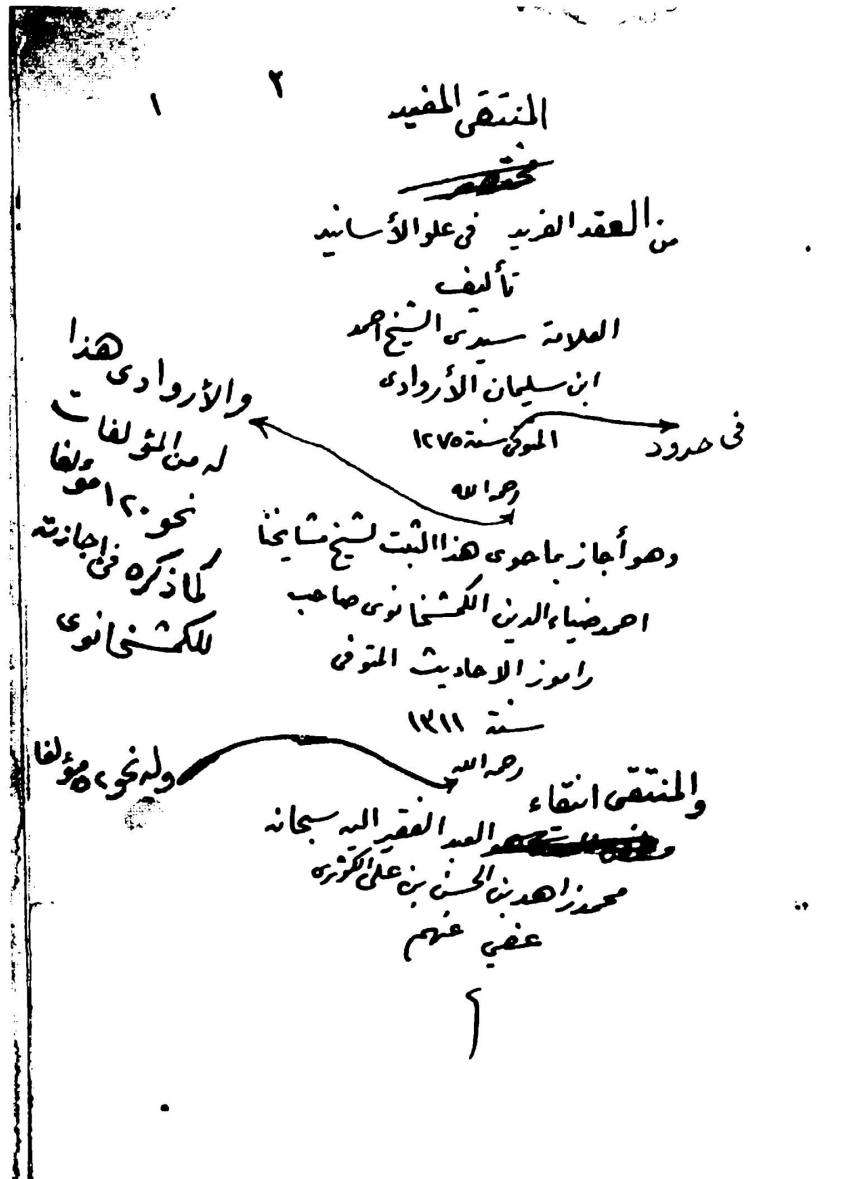 ٢
١
المنتقى المفيد
مختصر
من العقد الفريد في علو الأسانيد
تأليف
العلامة سيدى الشيخ احمد
ابن سليمان الأروادى
المتوفى سنة ١٢٧٥
فى حدود
رحمه الله
وهو أجاز بما حوى هذا الثبت لشيخ مشايخنا
احمد ضياء الدين الكمشخانوى صاحب
راموز الاحاديث المتوفى
سنة ١٣١١
رحمه الله
والمنتقى انتقاء
العبد الفقير اليه سبحانه
محمد زاهد بن الحسن بن على الكوثرى
عفي عنهم
والأروادى هذا
له من المؤلفات
نحو ١٢٠ مؤلفا
كما ذكره فى اجازته
للكمشخانوى
وله نحو ٥٢ مؤلفا